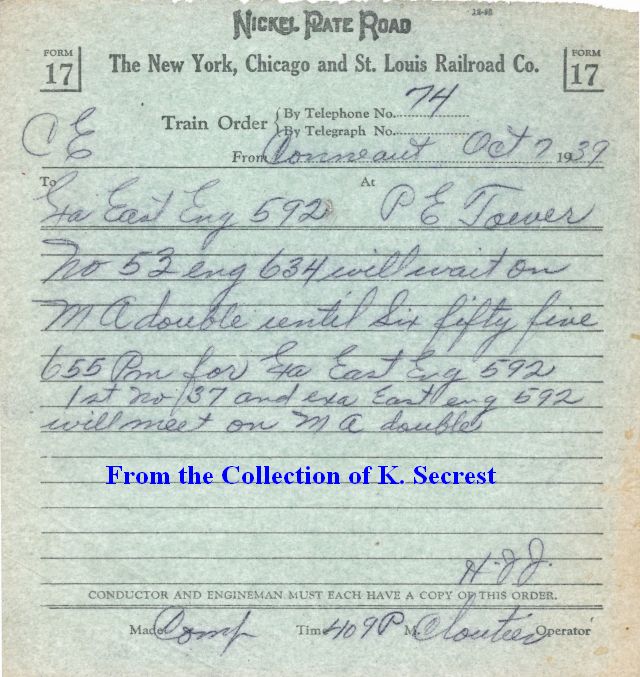 NICKEL PLATE ROAD
FORM 17
The New York, Chicago and St. Louis Railroad Co.
FORM 17
Train Order
By Telephone No. 74
By Telegraph No.
C E
From Conneaut Oct 7 1939
To At
Exa East Eng 592 P E Tower
No 52 eng 634 will wait on
M A double until Six fifty five
655 Pm for Exa East Eng 592
1st No 37 and exa East eng 592
will meet on M A double
From the Collection of K. Secrest
H.J.J.
CONDUCTOR AND ENGINEMAN MUST EACH HAVE A COPY OF THIS ORDER.
Made Comp Time 409 P M. Cloutier Operator